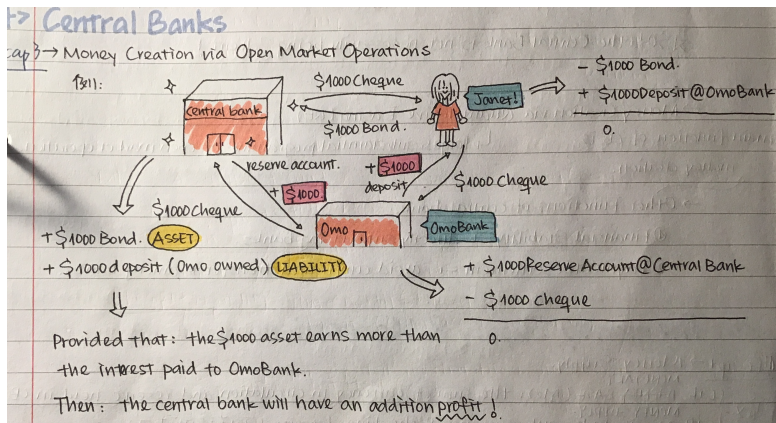 Central Banks
cap3→ Money Creation via Open Market Operations
$1000 Cheque
- $1000 Bond.
Janet!
+ $1000 Deposit@OmoBank
Central bank
$1000 Bond.
0.
reserve account.
+ $1000
deposit
$1000 Cheque
+ $1000
$1000 Cheque
Omo
OmoBank
+ $1000 Bond. ASSET
+ $1000 deposit (Omo owned) LIABILITY
+ $1000 Reserve Account@Central Bank
- $1000 cheque
0.
Provided that: the $1000 asset earns more than
the interest paid to OmoBank.
Then: the central bank will have an addition profit!